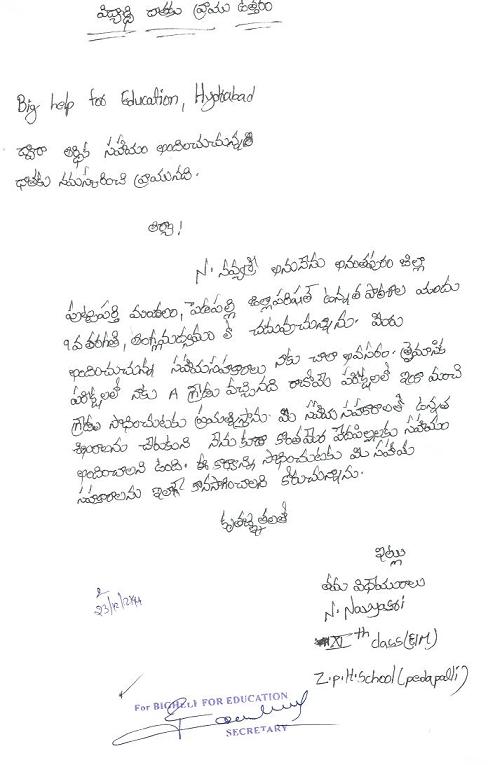 విద్యార్థి దాతకు వ్రాయు ఉత్తరం
Big help for Education, Hydrabad
ద్వారా ఆర్థిక సహాయం అందించుచున్న
దాతకు నమస్కరించి వ్రాయునది.
ఆర్యా!
N. నవ్యశ్రీ అనునేను అనంతపురం జిల్లా
పుట్టపర్తి మండలం, పెదపల్లి జిల్లాపరిషత్ ఉన్నత పాఠశాల యందు
తరగతి, ఆంగ్లమాధ్యమం లో చదువుచున్నాను. మీరు
అందించుచున్న సహాయసహకారాలు నాకు చాలా అవసరం. త్రైమాసిక
పరీక్షలలో నాకు A గ్రేడు వచ్చినది రాబోయే పరీక్షలలో ఇంకా మంచి
గ్రేడు సాధించుటకు ప్రయత్నిస్తాను. మీ సహాయ సహకారాలతో ఉన్నత
శిఖరాలను చేరుకుని నేను కూడా కొంతమంది పేదపిల్లలకు సహాయం
అందించాలని ఉంది. ఈ కార్యాన్ని సాధించుటకు మీ సహాయ
సహకారాలను ఇలాగే కొనసాగించాలని కోరుచున్నాను.
కృతజ్ఞతలతో
ఇట్లు
తమ విధేయురాలు
N. Navyasri
th class (E/M)
Z.P.H.School (pedapalli)
For BIGHELP FOR EDUCATION
SECRETARY